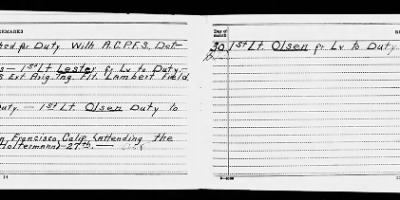 REMARKS
hed for Duty With A.C.P.F.S. Det-
s — 1st Lt Lester fr Lv to Duty —
S Ext Avig. Tng. Flt. Lambert Field
uty. — 1st Lt. Olsen Duty to
n Francisco, Calif. (attending the
Holtermann) - 27th. —
Day of
month
30 1st Lt. Olsen fr Lv to Duty.